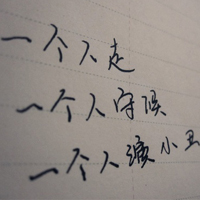 一个人走
一个人守候
一个人演小丑